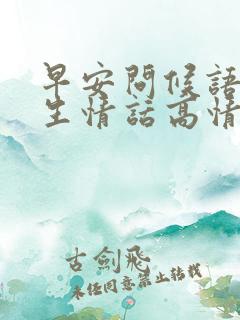 早安問候語
生情話高情
古劍飛
未經同意禁止轉載